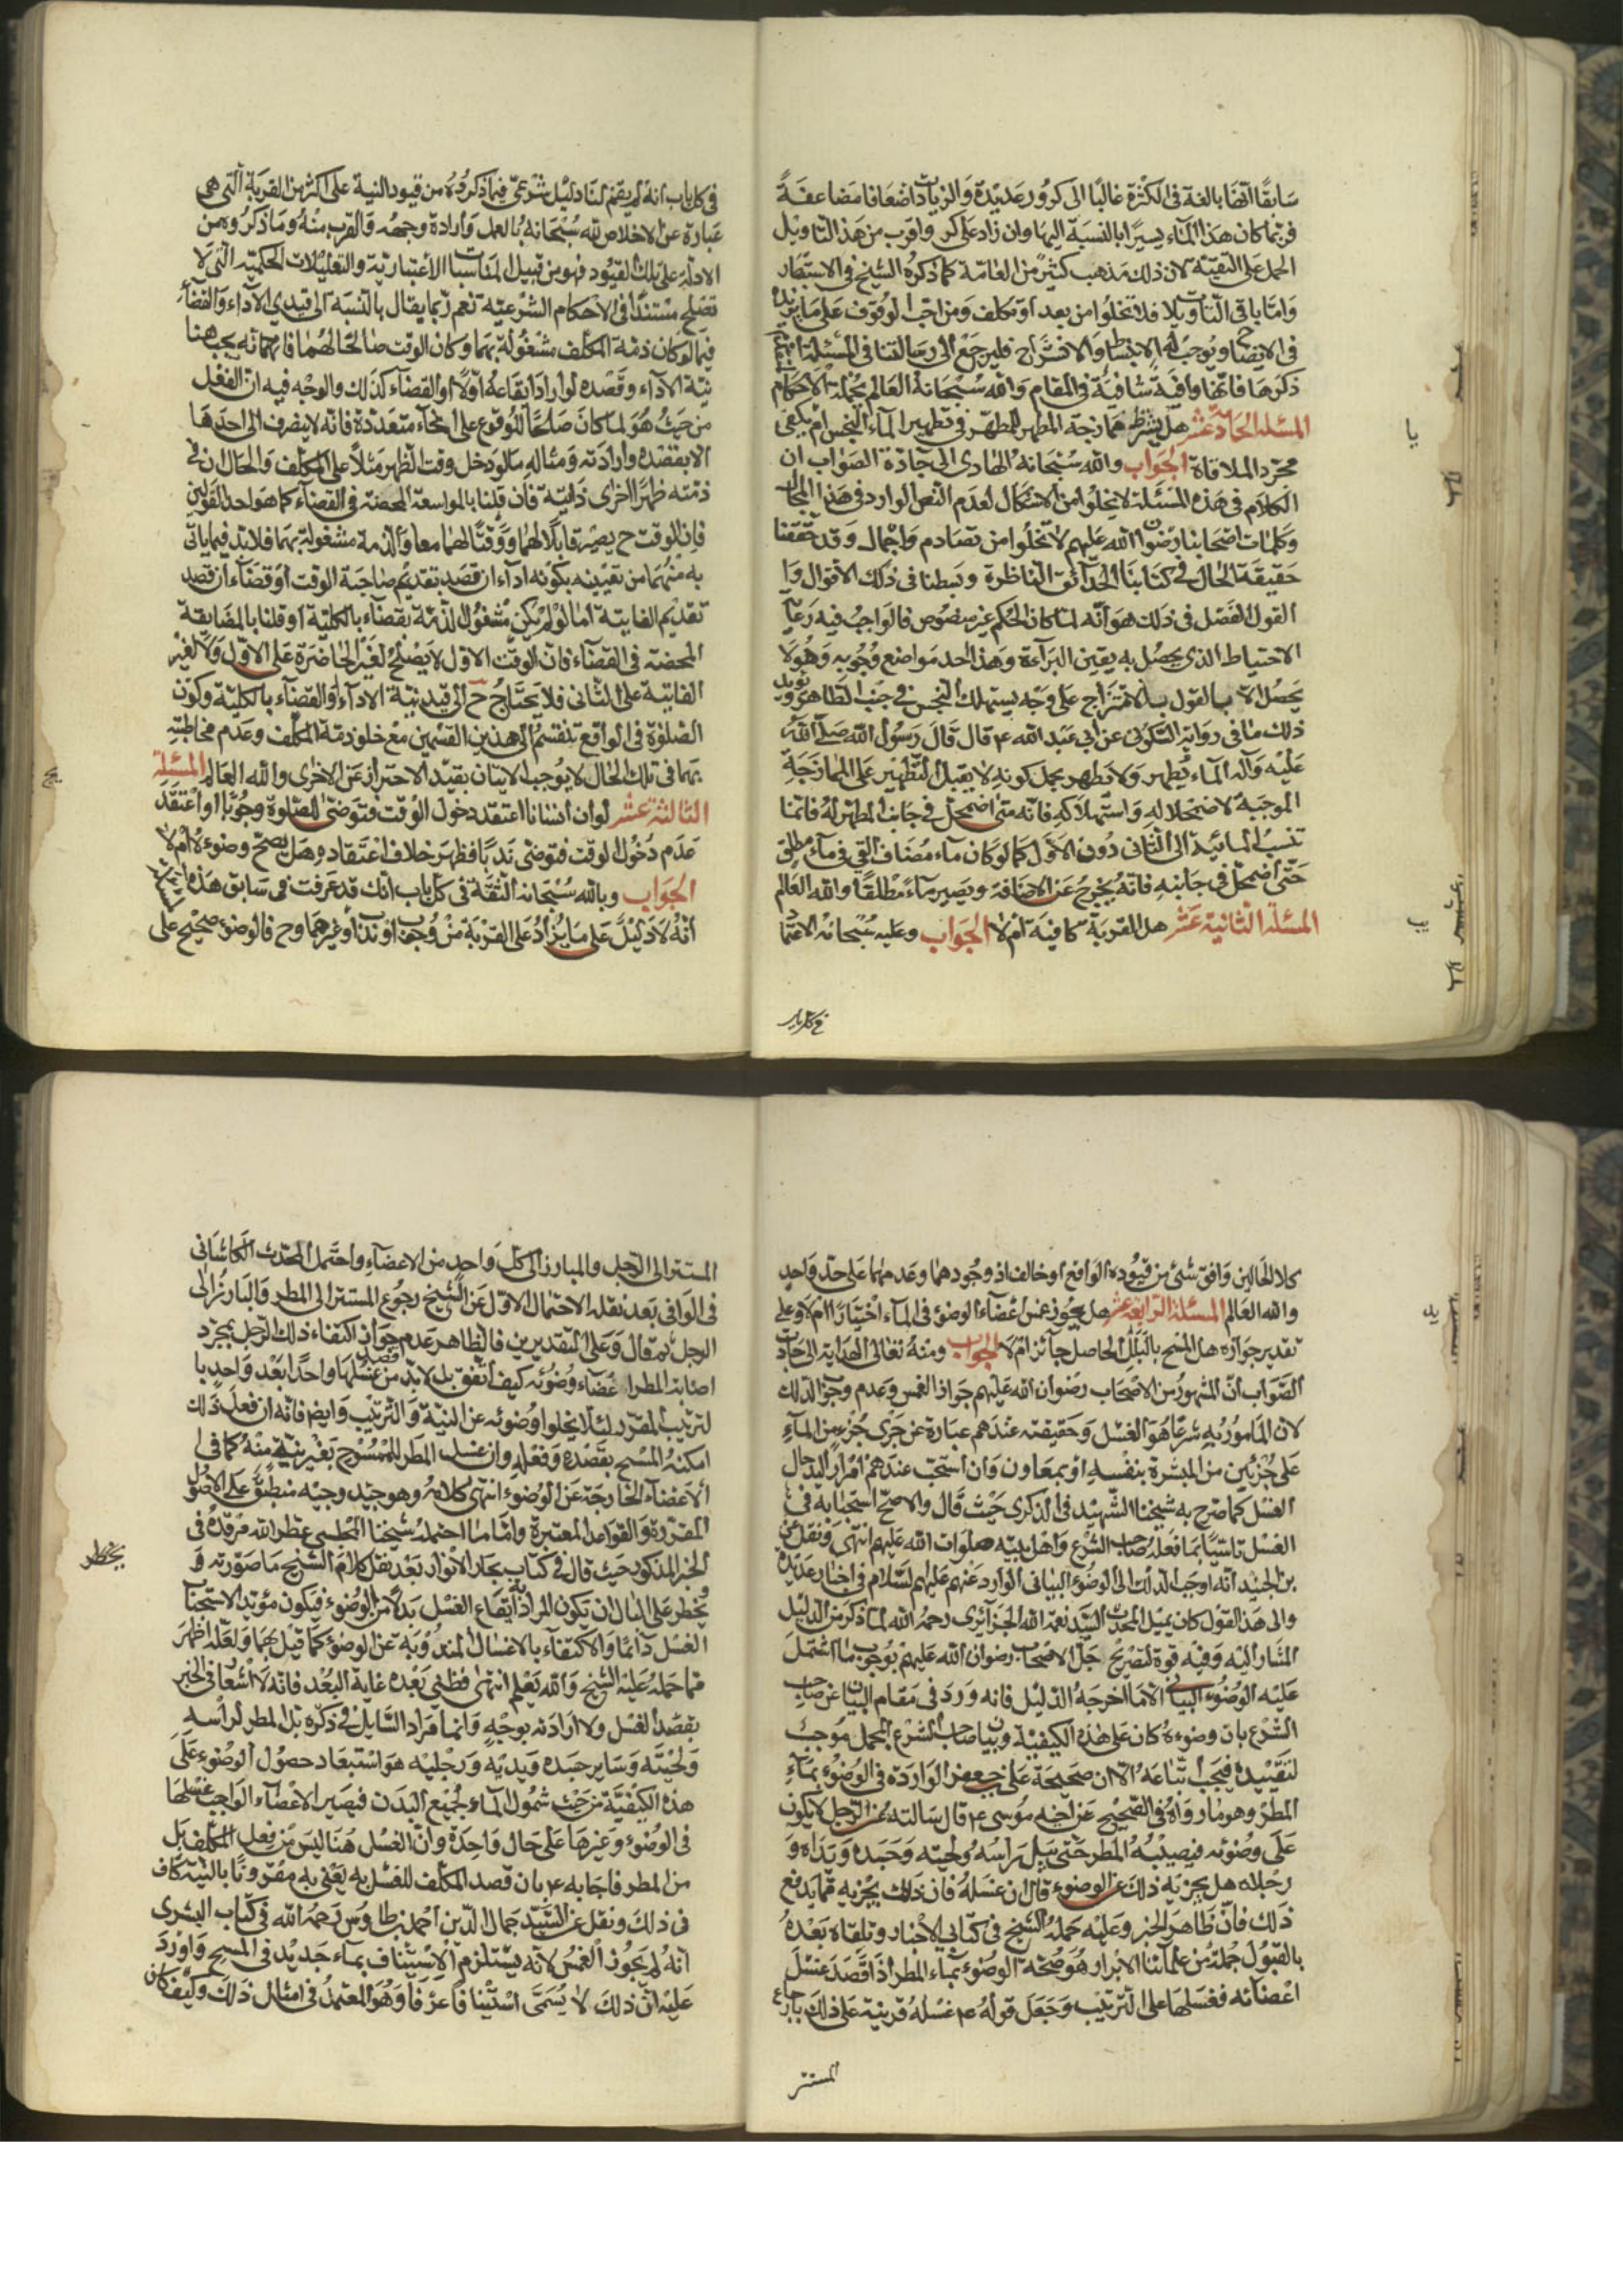 سابقًا آنفًا بالغة في الكثرة غالبًا الى كرور عديدة والزيادات اضعافا مضاعفة
فربما كان هذا الماء يسيرًا بالنسبة اليها وان زاد على كر واقرب من هذا التاويل
الحمل على التقية لان ذلك مذهب كثير من العامة كما ذكره الشيخ في الاستبصار
واما باقي التاويلات فلا تخلوا من بعد او تكلف ومن احب الوقوف على ما يزيده
في الايضاح ويوجب له الانبساط والانشراح فليرجع الى رسالتنا في المسئلة
ذكرها فانها وافية شافية في المقام والله سبحانه العالم بجملة الاحكام
المسئلة الحادية عشر هل يشترط ممازجة المطهر للمطهر في تطهير الماء النجس ام يكفي
مجرد الملاقاة الجواب والله سبحانه الهادي الى جادة الصواب ان
الكلام في هذه المسئلة لا يخلوا من الاشكال لعدم النص الوارد في هذا المجال
وكلمات اصحابنا رضوان الله عليهم لا تخلوا من تصادم واجمال وقد حققنا
حقيقة الحال في كتابنا الحدائق الناظرة وبسطنا في ذلك الاقوال وا
القول الفصل في ذلك هو انه لما كان الحكم غير منصوص فالواجب فيه رعايا
الاحتياط الذي يحصل به يقين البراءة وهذا احد مواضع وجوبه وهو لا
يحصل الا بالقول بالامتزاج على وجه يستهلك النجس في جنب الطاهر ويؤيد
ذلك ما في رواية السكوني عن ابي عبد الله ع قال قال رسول الله صلى الله
عليه وآله الماء يُطهر ولا يطهر بحمل كونه لا يقبل التطهير على الممازجة
الموجبة لاضمحلاله واستهلاكه فانه متى اضمحل في جانب المطهر له فانما
تنسب المائية الى الثاني دون الاول كما لو كان ماء مضاف القي في ماء مطلق
حتى اضمحل في جانبه فانه يخرج عن الاضافة ويصير ماءً مطلقًا والله العالم
المسئلة الثانية عشر هل القربة كافية ام لا الجواب وعليه سبحانه الاعتماد
في كل باب
في كل باب انه لم يقم لنا دليل شرعي فيما ذكروه من قيود النية على اكثر من القربة التي هي
عبارة عن الاخلاص لله سبحانه بالعمل وارادة وجهه والقرب منه وما ذكروه من
الادلة على تلك القيود فهو من قبيل المناسبات الاعتبارية والتعليلات الحكمية التي لا
تصلح مستندًا في الاحكام الشرعية نعم ربما يقال بالنسبة الى قيدي الآداء والقضآء
فيما لو كان ذمة المكلف مشغولة بهما وكان الوقت صالحًا لهما فانه يجب هنا
نية الاداء وقصده لو اراد ايقاعه اولًا او القضآء كذلك والوجه فيه ان الفعل
من حيث هو لما كان صالحًا للوقوع على انحاء متعددة فانه لا ينصرف الى احدها
الا بقصده وارادته ومثاله ما لو دخل وقت الظهر مثلًا على المكلف والحال ان في
ذمته ظهرًا اخرى فائتة فان قلنا بالمواسعة المحضة في القضآء كما هو احد القولين
فان الوقت ح يصير قابلًا لهما ووقتًا لهما معا والذمة مشغولة بهما فلا بد فيما ياتي
به منهما من تعيينه بكونه اداء ان قصد تقديم صاحبة الوقت او قضآء ان قصد
تقديم الفايتة اما لو لم يكن مشغول الذمة بقضآء بالكلية او قلنا بالمضايقة
المحضة في القضآء فان الوقت الاول لا يصلح لغير الحاضرة على الاول ولا لغير
الفايتة على الثاني فلا يحتاج ح الى قيد نية الاداء او القضآء بالكلية وكون
الصلوة في الواقع تنقسم الى هذين القسمين مع خلو ذمة المكلف وعدم مخاطبته
بهما في تلك الحال لا يوجب الاتيان بقيد الاحتراز عن الاخرى والله العالم المسئلة
الثالثة عشر لو ان انسانا اعتقد دخول الوقت فتوضى للصلوة وجوبًا او اعتقد
عدم دخول الوقت فتوضى ندبًا فظهر خلاف اعتقاده هل يصح وضوءه ام لا
الجواب وبالله سبحانه الثقة في كل باب انك قد عرفت في سابق هذه
انه لا دليل على ما يزاد على القربة من وجوب او ندب او غيرهما وح فالوضوء صحيح على
كلا الحالين وافق شئ من قيوده الواقع او خالف اذ وجودهما وعدمهما على حد واحد
والله العالم المسئلة الرابعة عشر هل يجوز غمس اعضاء الوضوء في الماء اختيارًا ام لا وعلى
تقدير جوازه هل المسح بالبلل الحاصل جائز ام لا الجواب ومنه تعالى الهداية الى جادة
الصواب ان المشهور من الاصحاب رضوان الله عليهم جواز الغمس وعدم وجوب الدلك
لان المامور به شرعًا هو الغسل وحقيقته عندهم عبارة عن جري جزء من المآء
على جزئين من البشرة بنفسه او بمعاون وان استحب عندهم امرار اليد حال
الغسل كما صرح به شيخنا الشهيد في الذكرى حيث قال والاصح استحبابه في
الغسل تاسيًا بما فعله صاحب الشرع واهل بيته صلوات الله عليهم انتهى ونقل عن
بن الجنيد انه اوجب الدلك الى الوضوء البياني الوارد عنهم عليهم السلام في اخبار عديدة
والى هذا القول كان يميل المحدث السيد نعمة الله الجزآئري رحمه الله لما ذكر من الدليل
المشار اليه وفيه قوة لتصريح جل الاصحاب رضوان الله عليهم بوجوب ما اشتمل
عليه الوضوء البياني الا ما اخرجه الدليل فانه ورد في مقام البيان عن صاحب
الشرع بان وضوءه كان على هذه الكيفية وبيان صاحب الشرع المجمل موجب
لتقييده فيجب اتباعه الا ان صحيحة علي بن جعفر الواردة في الوضوء بمآء
المطر وهو ما رواه في الصحيح عن اخيه موسى ع قال سالته عن الرجل لا يكون
على وضوئه فيصيبه المطر حتى يبل راسه ولحيته وجسده ويداه و
رجلاه هل يجزيه ذلك عن الوضوء قال ان غسله فان ذلك يجزيه مما يدفع
ذلك فان ظاهر الخبر وعليه حمله الشيخ في كتابي الاخبار وتلقاه بعده
بالقبول جملة من علمائنا الابرار هو صحة الوضوء بماء المطر اذا قصد غسل
اعضائه فغسلها على الترتيب وجعل قوله ع غسله قرينة على ذلك بارجاع
المستتر
المستتر الى الرجل والبارز الى كل واحد من الاعضاء واحتمل المحدث الكاشاني
في الوافي بعد نقله الاحتمال الاول عن الشيخ رجوع المستتر الى المطر والبارز الى
الرجل ثم قال وعلى التقديرين فالظاهر عدم جواز اكتفاء ذلك الرجل بمجرد
اصابة المطر اعضآء وضوئه كيف اتفق بل لا بد من غسلها واحدًا بعد واحد با
لترتيب المقرر لئلا يخلوا وضوئه عن النية والترتيب وايضا فانه ان فعل ذلك
امكنه المسح بقصده وفعله وان غسل المطر الممسوح بغير نية منه كما في
الاعضآء الخارجة عن الوضوء انتهى كلامه وهو جيد وجيه منطبق على الاصول
المقررة والقواعد المعتبرة واما ما احتمله شيخنا المجلسي عطر الله مرقده في
الخبر المذكور حيث قال في كتاب بحار الانوار بعد نقل كلام الشيخ ما صورته و
يخطر على البال ان تكون المراد ايقاع الغسل بدلًا من الوضوء فيكون مؤيد الاستحباب
الغسل دآئمًا والاكتفاء بالاغسال المندوبة عن الوضوء كما قيل بهما ولعله اظهر
مما حمله عليه الشيخ والله يعلم انتهى فظني بعده غاية البعد فانه لا اشعار في الخبر
بقصد الغسل ولا ارادته بوجه وانما مراد السايل في ذكره بل المطر لراسه
ولحيته وساير جسده ويديه ورجليه هو استبعاد حصول الوضوء على
هذه الكيفية من حيث شمول المآء لجميع البدن فيصير الاعضآء الواجب غسلها
في الوضوء وغيرها على حال واحدة وان الغسل هنا ليس من فعل المكلف بل
من المطر فاجابه ع بان قصد المكلف للغسل به يعني به مقرونًا بالنية كاف
في ذلك ونقل عن السيد جمال الدين احمد بن طاوس رحمه الله في كتاب البشرى
انه لم يجوز الغمس لانه يستلزم الاستيناف بمآء جديد في المسح واورد
عليه ان ذلك لا يسمى استينافًا عرفًا وهو المعتمد في امثال ذلك وكيف كان
يخطر